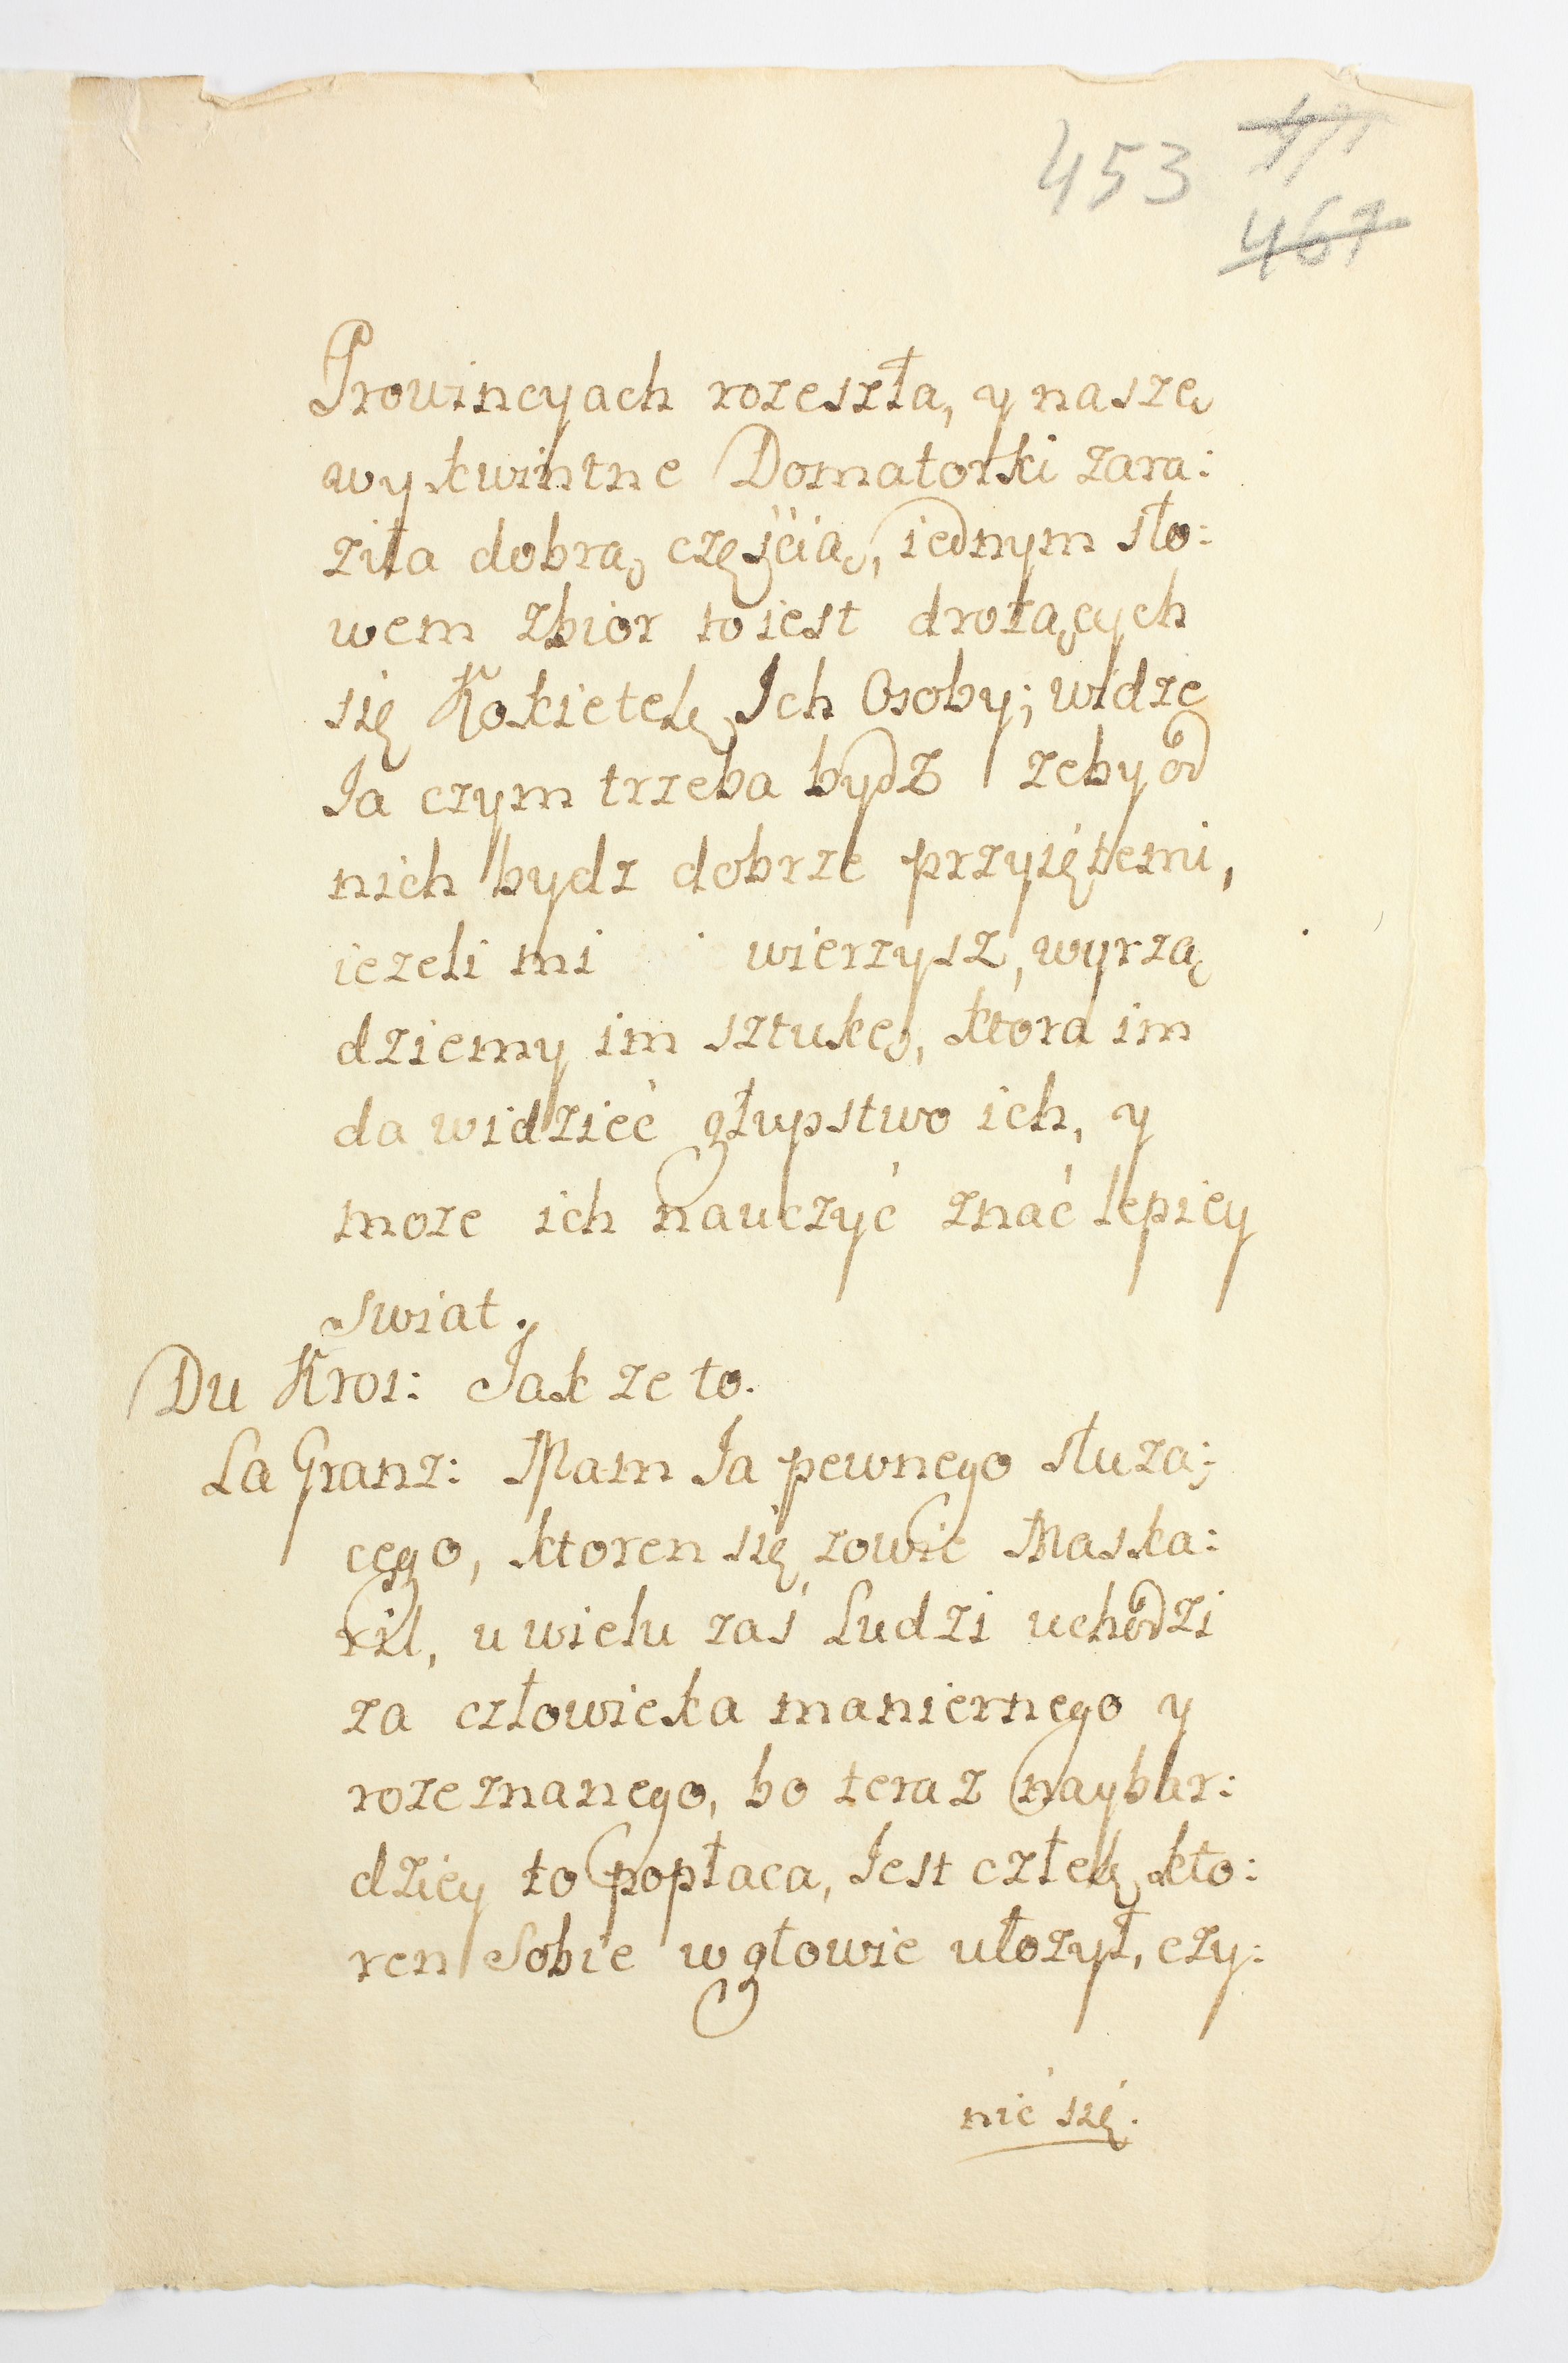 453
467
Prowincyach rozeszła, y naszę
wykwintne Domatorki zara:
ziła dobrą częścią, iednym sło:
wem zbior to iest drożących
się Kokietek Ich Osoby; widzę
Ia czym trzeba bydz zeby od
nich bydz dobrze przyiętemi,
iezeli mi wierzysz, wyrzą
dziemy im sztukę, ktora im
da widzieć głupstwo ich, y
moze ich nauczyć znać lepiey
swiat.
Du Kros: Jak ze to.
La Granz: Mam Ia pewnego służą;
cego, ktoren się zowie Maska:
ril, u wielu zaś Ludzi uchodzi
za człowieka maniernego y
rozeznanego, bo teraz naybar:
dziey to popłaca, Iest człek kto:
ren Sobie w głowie ułozył, czy:
nić się.